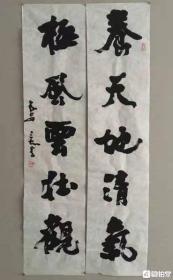 養天地清氣
極風雲壯觀